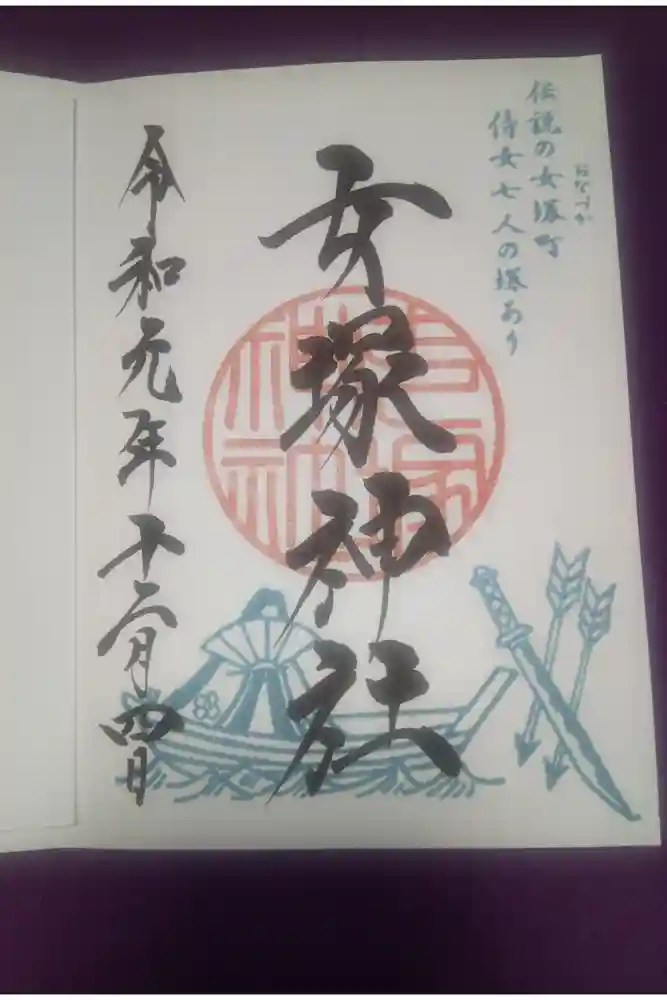 伝説の女塚町
おなづか
侍女七人の塚あり
女塚神社
女塚神社
令和元年十二月四日